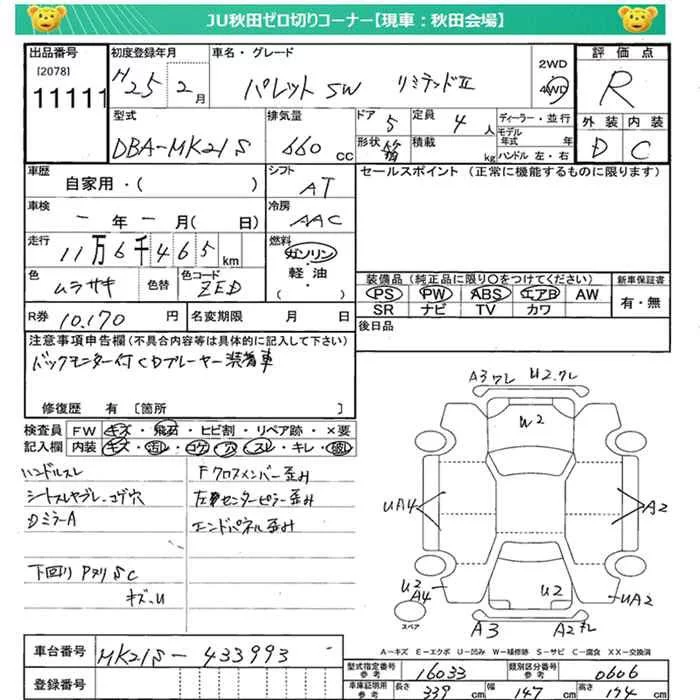 JU秋田ゼロ切りコーナー【現車：秋田会場】
出品番号 初度登録年月 車名・グレード 2WD 評価点
[2078] 11111 H25 2月 パレットSW リミテッドⅡ 4WD R
型式 排気量 ドア 定員 ディーラー・並行 外装 内装
DBA-MK21S 660 CC 5 4人 モデル年式 年 D C
形状 箱 積載 kg ハンドル 左・右
車歴 シフト セールスポイント（正常に機能するものに限ります）
自家用・（ ） AT
車検 冷房
ー年ー月（ 日） AAC
走行 燃料
11万6千465km ガソリン・軽油・（ ）
色 色替 色コード
ムラサキ ZED
装備品（純正品に限り○をつけてください） 新車保証書
PS PW ABS エアB AW 有・無
SR ナビ TV カワ
R券 10,170円 名変期限 月 日 後日品
注意事項申告欄（不具合内容等は具体的に記入して下さい）
バックモニター付CDプレーヤー装着車
修復歴 有 〔箇所 〕
検査員記入欄 FW キズ・飛石・ヒビ割・リペア跡・×要
内装 キズ・汚レ・コゲ・穴・スレ・キレ・破
ハンドルスレ Fクロスメンバー歪み
シートスレヤブレ、コゲ穴 左センターピラー歪み
DミラーA エンドパネル歪み
下回り Pヌリ SC
キズ、U
A3ワレ U2.ワレ
W2
UA4 A2
U2
A4
U2
UA2
スペア
A3 A2ワレ
A－キズ E－エクボ U－凹み W－補修跡 S－サビ C－腐食 XX－交換済
車台番号 MK21S-433993
登録番号
型式指定番号参考 16033 類別区分番号参考 0606
車庫証明用参考 長さ 339cm 幅 147cm 高さ 174cm